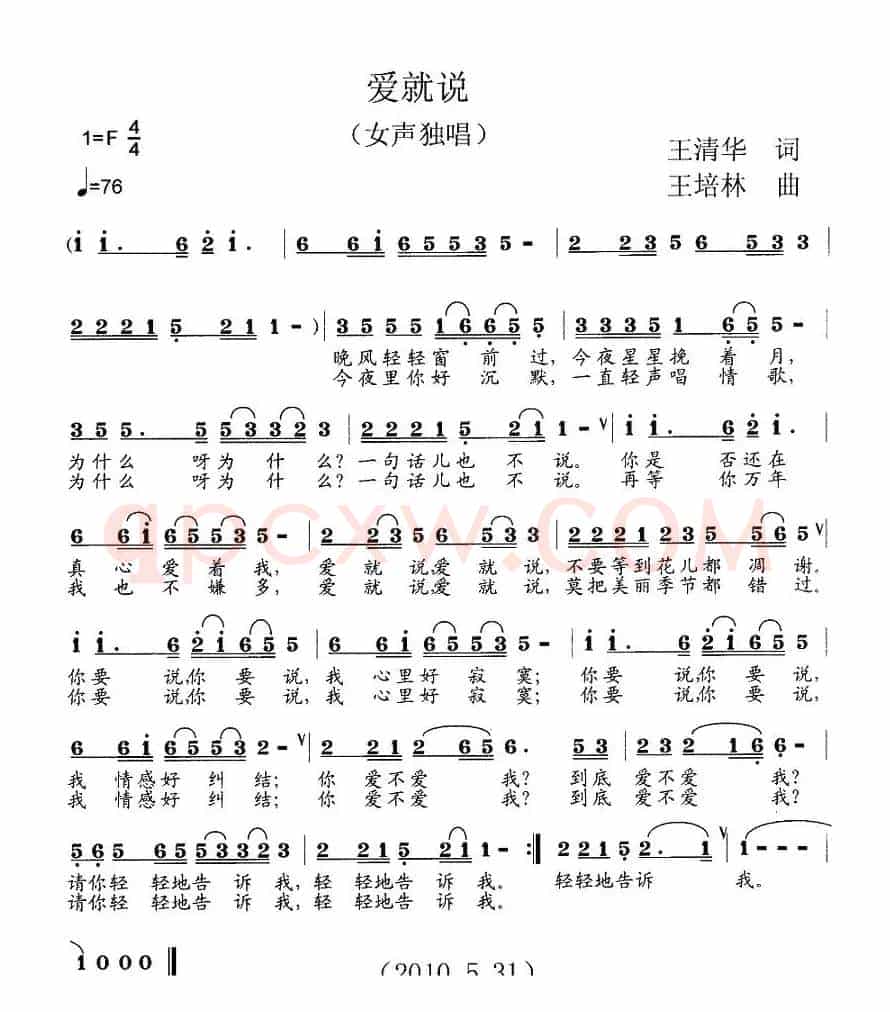 爱就说
（女声独唱）
1=F 4/4
♩=76
王清华 词
王培林 曲
(i i. 6 2 i. | 6 6 i 6 5 5 3 5 - | 2 2 3 5 6 5 3 3 |
2 2 2 1 5 2 1 1 - ) | 3 5 5 5 1 6 6 5 5 | 3 3 3 5 1 6 5 5 - |
晚风轻轻窗 前 过，今夜星星挽 着 月，
今夜里你好 沉 默，一直轻声唱 情 歌，
3 5 5. 5 5 3 3 2 3 | 2 2 2 1 5 2 1 1 - ∨ | i i. 6 2 i. |
为什么 呀为 什 么？一句话儿也 不 说。你是 否还在
为什么 呀为 什 么？一句话儿也 不 说。再等 你万年
6 6 i 6 5 5 3 5 - | 2 2 3 5 6 5 3 3 | 2 2 2 1 2 3 5 5 6 5 ∨ |
真 心 爱 着 我，爱 就 说,爱 就 说，不要等到花儿都 凋 谢。
我 也 不 嫌 多，爱 就 说,爱 就 说，莫把美丽季节都 错 过。
qpcxw.COM
i i. 6 2 i 6 5 5 | 6 6 i 6 5 5 3 5 - | i i. 6 2 i 6 5 5 |
你要 说,你 要 说，我 心里好 寂 寞；你要 说,你 要 说，
你要 说,你 要 说，我 心里好 寂 寞；你要 说,你 要 说，
6 6 i 6 5 5 3 2 - ∨ | 2 2 1 2 6 5 6. 5 3 | 2 3 2 1 6 6 - |
我 情感好 纠 结；你 爱不爱 我？到底 爱不爱 我？
我 情感好 纠 结；你 爱不爱 我？到底 爱不爱 我？
5 6 5 6 5 5 3 3 2 3 | 2 2 2 1 5 2 1 1 - :‖ 2 2 1 5 2. 1 ∨ | 1 - - - |
请你轻 轻地告 诉 我，轻 轻地告 诉 我。 轻轻地告诉 我。
请你轻 轻地告 诉 我，轻 轻地告 诉 我。
1 0 0 0 ‖
(2010.5.31)